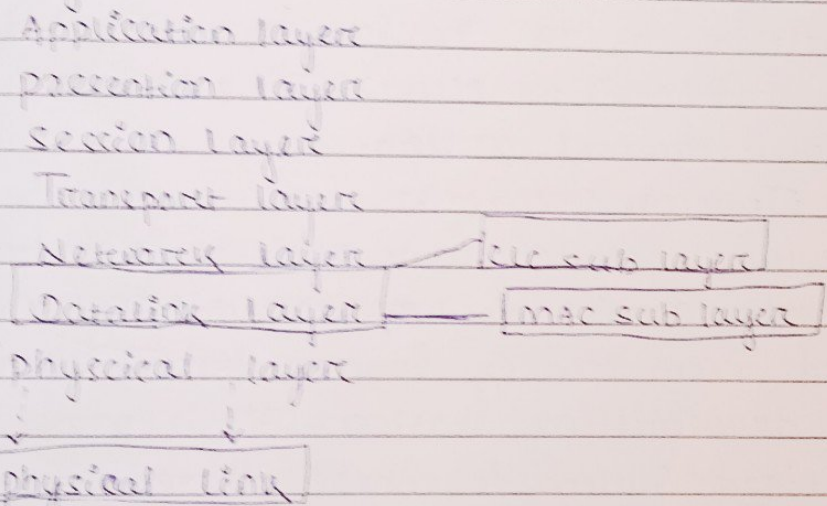 Application layer
presention layer
session layer
Transport layer
Network layer LLC sub layer
Datalink layer MAC sub layer
physcical layer
physical link